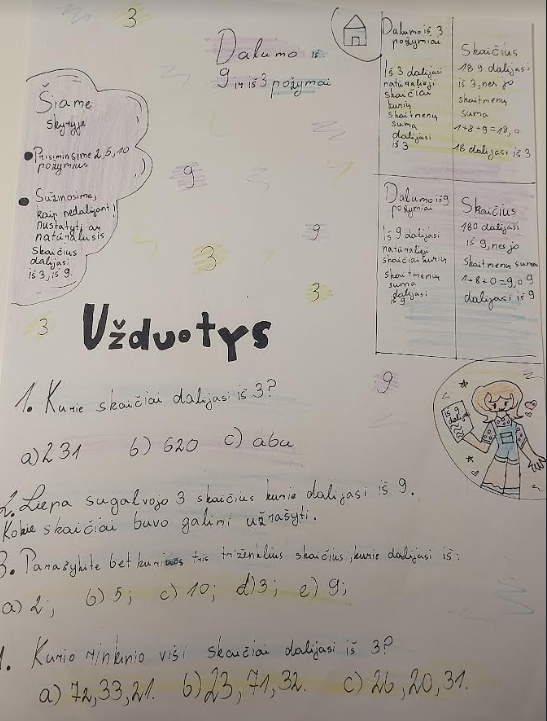 Dalumo iš
9 ir iš 3 požymiai
Šiame
skyriuje
Prisiminsime 2, 5, 10
požymius
Sužinosime,
kaip nedalijant
nustatyti ar
natūralusis
skaičius
dalijasi
iš 3, iš 9.
Dalumo iš 3
požymiai
Iš 3 dalijasi
natūralieji
skaičiai
kurių
skaitmenų
suma
dalijasi
iš 3
Skaičius
189 dalijasi
iš 3, nes jo
skaitmenų
suma
1+8+9=18, o
18 dalijasi iš 3
Dalumo iš 9
požymiai
Iš 9 dalijasi
natūralieji
skaičiai kurių
skaitmenų
suma
dalijasi
iš 9
Skaičius
180 dalijasi
iš 9, nes jo
skaitmenų suma
1+8+0=9, o 9
dalijasi iš 9
3
9
9
3
3
3
9
iš 9
dalijasi
Užduotys
1. Kurie skaičiai dalijasi iš 3?
a) 231 b) 620 c) abu
2. Liepa sugalvojo 3 skaičius kurie dalijasi iš 9.
Kokie skaičiai buvo galimi užrašyti.
3. Parašykite bet kuriuos tris triženklius skaičius, kurie dalijasi iš:
a) 2; b) 5; c) 10; d) 3; e) 9;
4. Kurio rinkinio visi skaičiai dalijasi iš 3?
a) 72, 33, 21. b) 23, 71, 32. c) 26, 20, 31.